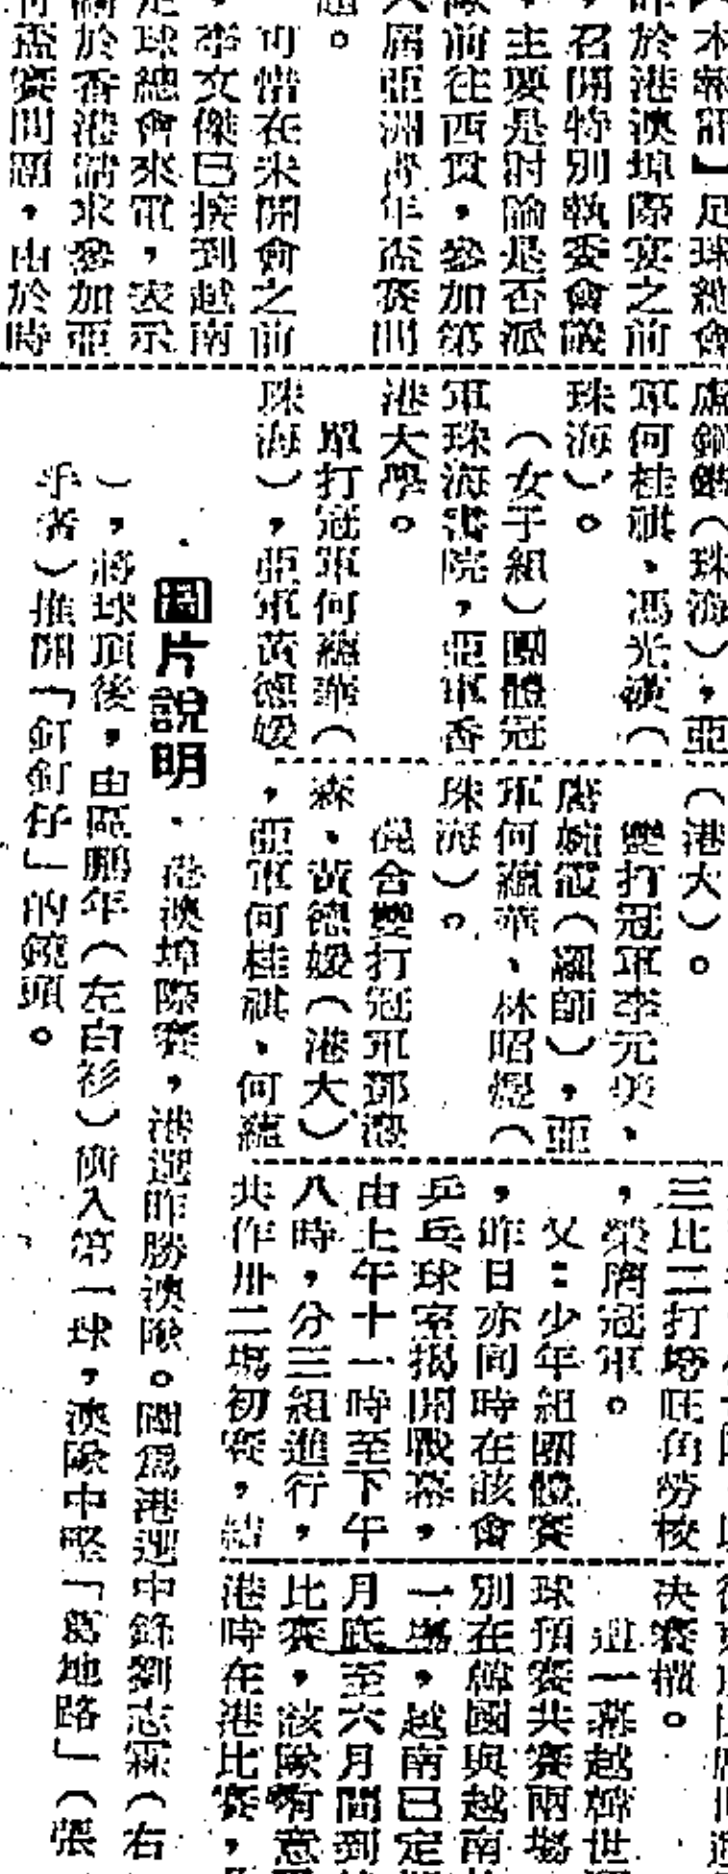 木
足球總會
昨於港澳埠際宴之前
,召開特別執委會議
,主要是討論是否派
隊前往西貢,參加第
屆亞洲青年盃賽問
題。
可惜在未開會之前
,李文傑已接到越南
足球總會來電,表示
關於香港請求參加亞
盃賽問題,由於時
(珠海),亞
軍何桂祺、馮光漢(
珠海)。
(女子組)團體冠
軍珠海書院,亞軍香
港大學。
單打冠軍何蘊華(
珠海),亞軍黃德媛
(港大)。
雙打冠軍李元美、
(羅師),亞
軍何蘊華、林昭煜(
珠海)。
混合雙打冠軍鄧
森、黃德媛(港大)
,亞軍何桂祺、何蘊
三比二打垮旺角勞校
,榮膺冠軍。
又:少年組團體賽
,昨日亦同時在該會
乒乓球室揭開戰幕,
由上午十一時至下午
八時,分三組進行,
共作卅二場初賽,結
決賽權。
這一幕越韓世
球預賽共賽兩場
別在韓國與越南
一場,越南已定
月底至六月間到
比賽,該隊有意
港時在港比賽,
圖片說明・港澳埠際賽,港選昨勝澳隊。圖爲港選中鋒劉志霖(右
),將球頂後,由區鵬年(左白衫)衝入第一球,澳隊中堅「葛地路」(張
手者)推開「釘釘仔」的鏡頭。